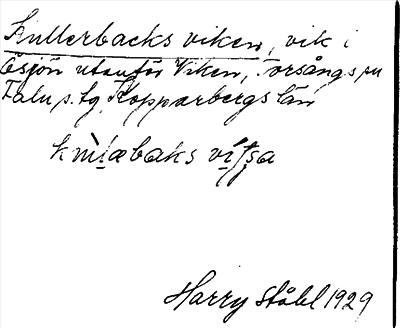 Kullerbacks viken, vik i
Ösjön utanför Viken, Torsångs sn
Falu s. tg, Kopparbergs län
Harry Ståhl 1929